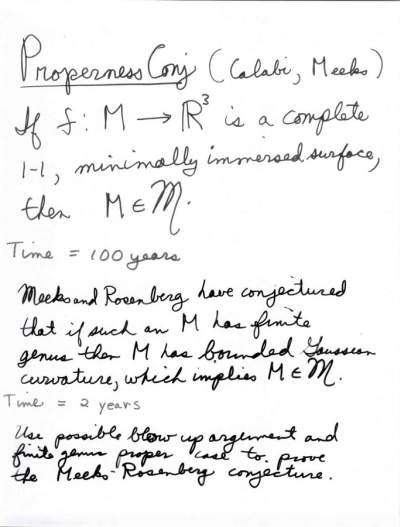 Properness Conj (Calabi, Meeks)
If f: M → ℝ³ is a complete
1-1, minimally immersed surface,
then M ∈ ℳ.
Time = 100 years
Meeks and Rosenberg have conjectured
that if such an M has finite
genus then M has bounded Gaussian
curvature, which implies M ∈ ℳ.
Time = 2 years
Use possible blow up argument and
finite genus proper case to prove
the Meeks-Rosenberg conjecture.